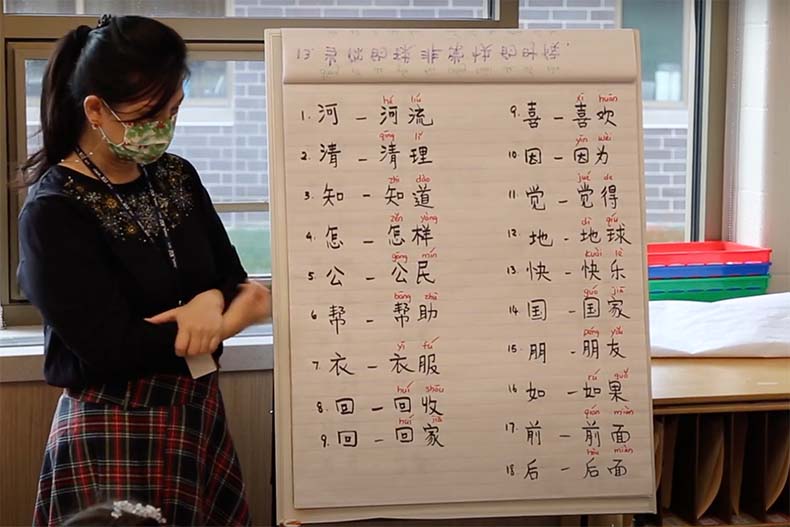 hé liú
1. 河 — 河流
qīng lǐ
2. 清 — 清理
zhī dào
3. 知 — 知道
zěn yàng
4. 怎 — 怎样
gōng mín
5 公 — 公民
bāng zhù
6. 帮 — 帮助
yī fú
7. 衣 — 衣服
huí shōu
8. 回 — 回收
huí jiā
9. 回 — 回家
xǐ huān
9. 喜 — 喜欢
yīn wèi
10. 因 — 因为
jué de
11. 觉 — 觉得
dì qiú
12. 地 — 地球
kuài lè
13. 快 — 快乐
guó jiā
14. 国 — 国家
péng yǒu
15. 朋 — 朋友
rú guǒ
16 如 — 如果
qián miàn
17. 前 — 前面
hòu miàn
18 后 — 后面